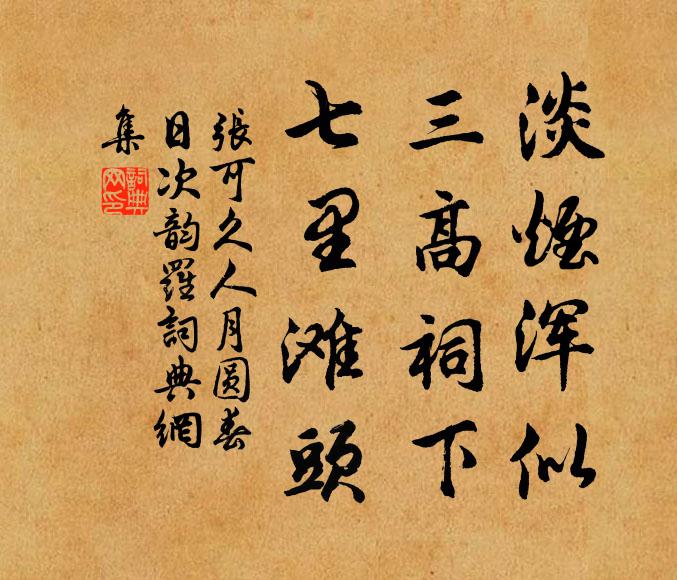 淡煙浑似
三高祠下
七里滩頭
張可久人月圆春
日次韵羅詞典網
集
詞典
网印